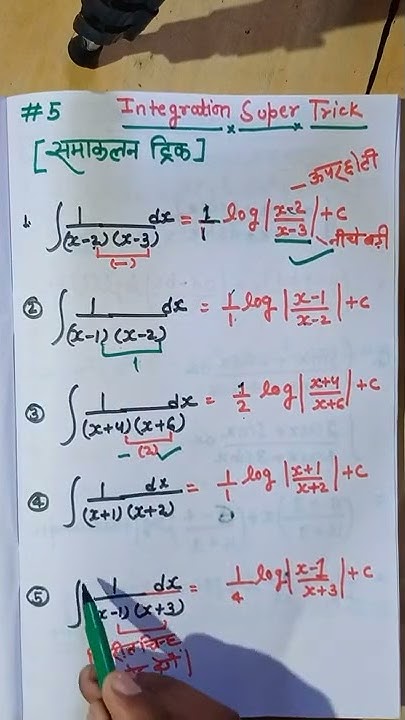 #5 Integration Super Trick
[समाकलन ट्रिक]
ऊपर छोटी
1. ∫ 1/((x-2)(x-3)) dx = 1/1 log|(x-2)/(x-3)| + c
(-) नीचे बड़ी
② ∫ 1/((x-1)(x-2)) dx = 1/1 log|(x-1)/(x-2)| + c
1
③ ∫ 1/((x+4)(x+6)) dx = 1/2 log|(x+4)/(x+6)| + c
(2)
④ ∫ 1/((x+1)(x+2)) dx = 1/1 log|(x+1)/(x+2)| + c
⑤ ∫ 1/(x-1)(x+3) dx = 1/4 log|(x-1)/(x+3)| + c
चिन्ह